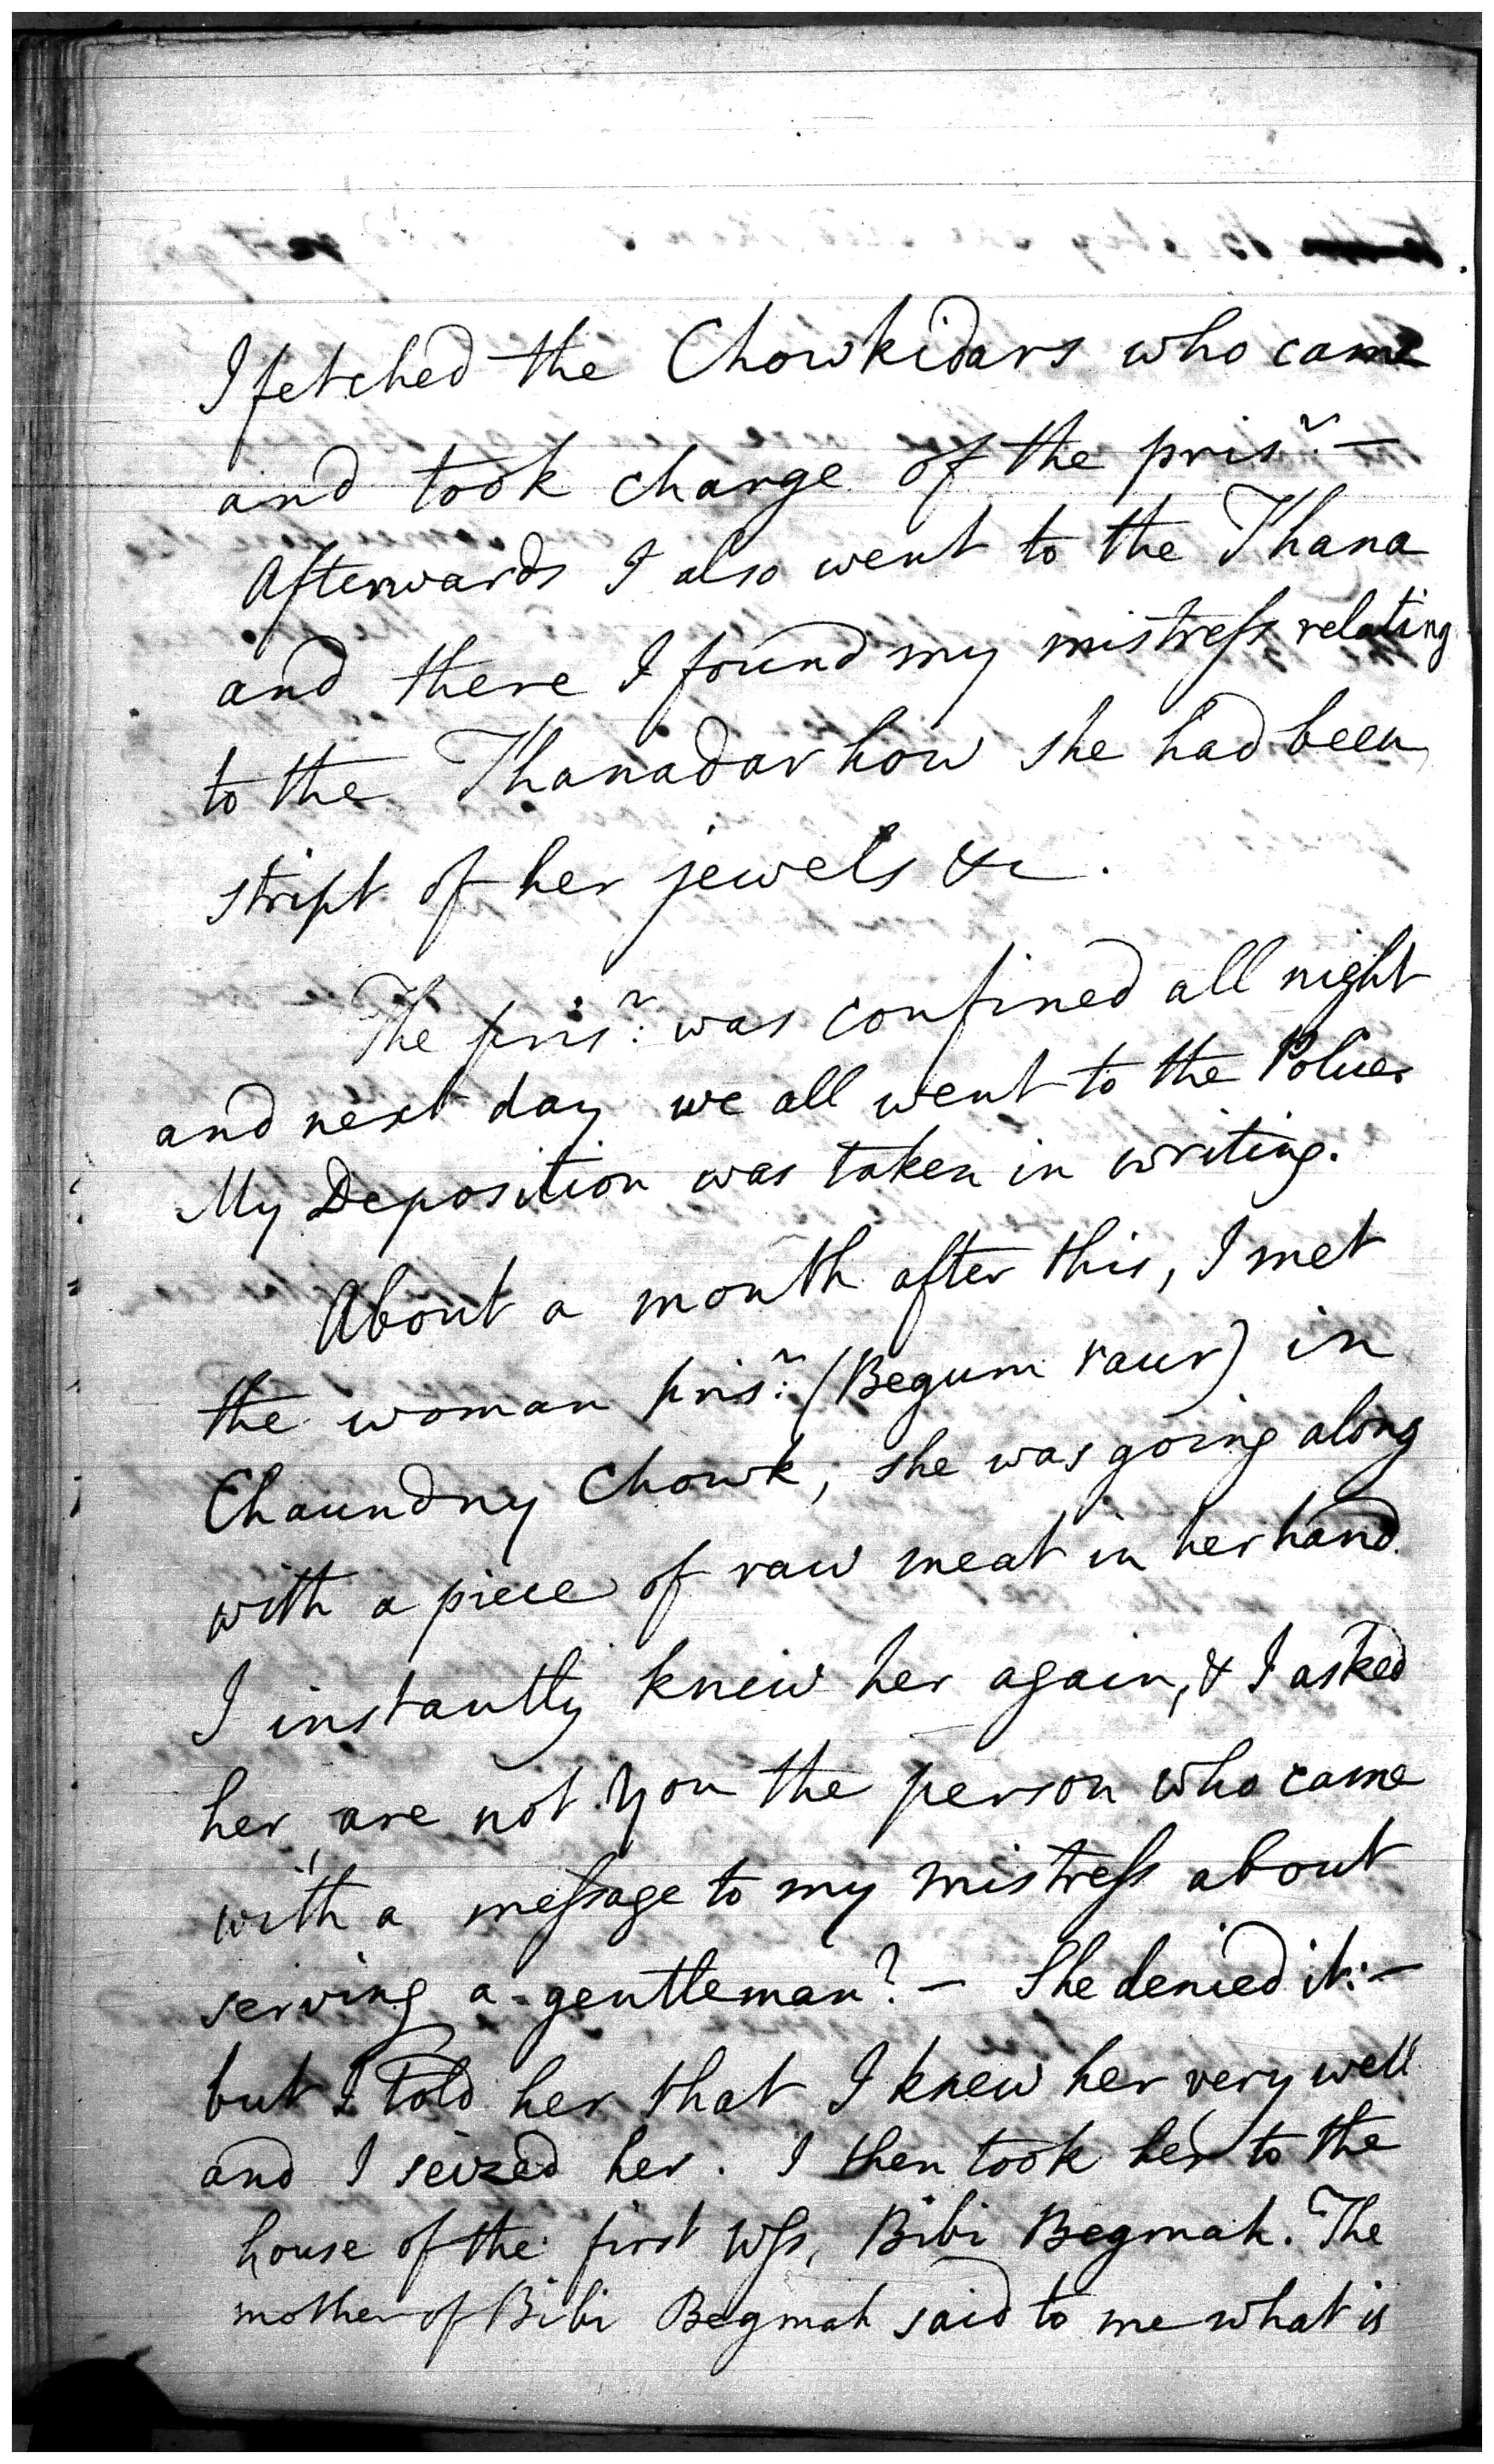 I fetched the Chowkidars who came
and took charge of the prisr. —
Afterwards I also went to the Thana
and there I found my mistress relating
to the Thanadar how she had been
stript of her jewels &c.
The prisr. was confined all night
and next day we all went to the Police.
My Deposition was taken in writing.
About a month after this, I met
the woman prisr. (Begum raur) in
Chaundny Chowk, she was going along
with a piece of raw meat in her hand.
I instantly knew her again, & I asked
her, are not you the person who came
with a message to my mistress about
serving a gentleman? — She denied it: —
but I told her that I knew her very well
and I seized her. I then took her to the
house of the first Wss, Bibi Begmah. The
mother of Bibi Begmah said to me what is